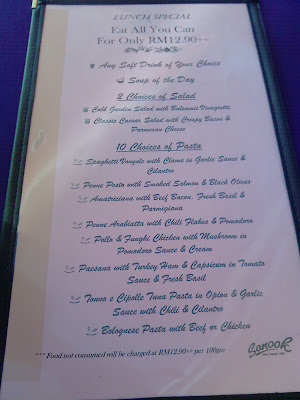 LUNCH SPECIAL
Eat All You Can
For Only RM12.90++
Any Soft Drink of Your Choice
Soup of the Day
2 Choices of Salad
Cold Garden Salad with Balsamic Vinaigrette
Classic Caesar Salad with Crispy Bacon &
Parmesan Cheese
10 Choices of Pasta
Spaghetti Vongole with Clams in Garlic Sauce &
Cilantro
Penne Pesto with Smoked Salmon & Black Olives
Amatriciana with Beef Bacon, Fresh Basil &
Parmigiana
Penne Arabiatta with Chili Flakes & Pomodoro
Pollo & Funghi Chicken with Mushroom in
Pomodoro Sauce & Cream
Paesana with Turkey Ham & Capsicum in Tomato
Sauce & Fresh Basil
Tonno e Cipolle Tuna Pasta in Onion & Garlic
Sauce with Chili & Cilantro
Bolognese Pasta with Beef or Chicken
Sanook
***Food not consumed will be charged at RM12.90++ per 100gm